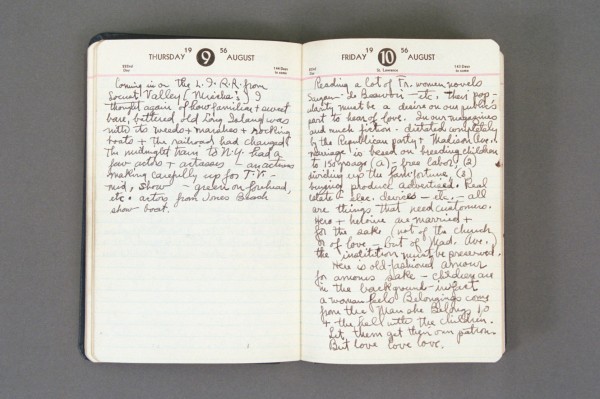 THURSDAY 19 9 56 AUGUST
222nd Day
144 Days to come
Coming in on the L.I. R.R. from
Locust Valley (Mirisha's) I
thought again of how familiar + sweet
bare, battered old Long Island was
with its weeds + marshes + rocking
boats + The railroad had changed
The midnight train to N.Y. had a
few actors + artisans — an actress
making carefully up for T.V. —
mid, show — green on forehead,
etc. actors from Jones Beach
show boat.
FRIDAY 19 10 56 AUGUST
223rd Day
St. Lawrence
143 Days to come
Reading a lot of Fr. women novels
Sagan — de Beauvoir — etc. Their pop-
ularity must be a desire on our public's
part to hear of love. In our magazines
and much fiction — dictated completely
by the Republican party + Madison Ave. —
marriage is based on breeding children
to 150 (1) free labor (2)
dividing up the farm, fortune, (3)
buying produce advertised. Real
estate, elec. devices — etc. — all
are things that need customers.
Hero + heroine are married +
for the sake (not of the church
or of love — but of Mad. Ave.)
the institution must be preserved.
Here is old-fashioned amour
for amour's sake — children are
in the background — in fact
a woman feels Belongings come
from the Man she Belongs to
+ the hell with the children.
Let them get their own patrons
But love love love.